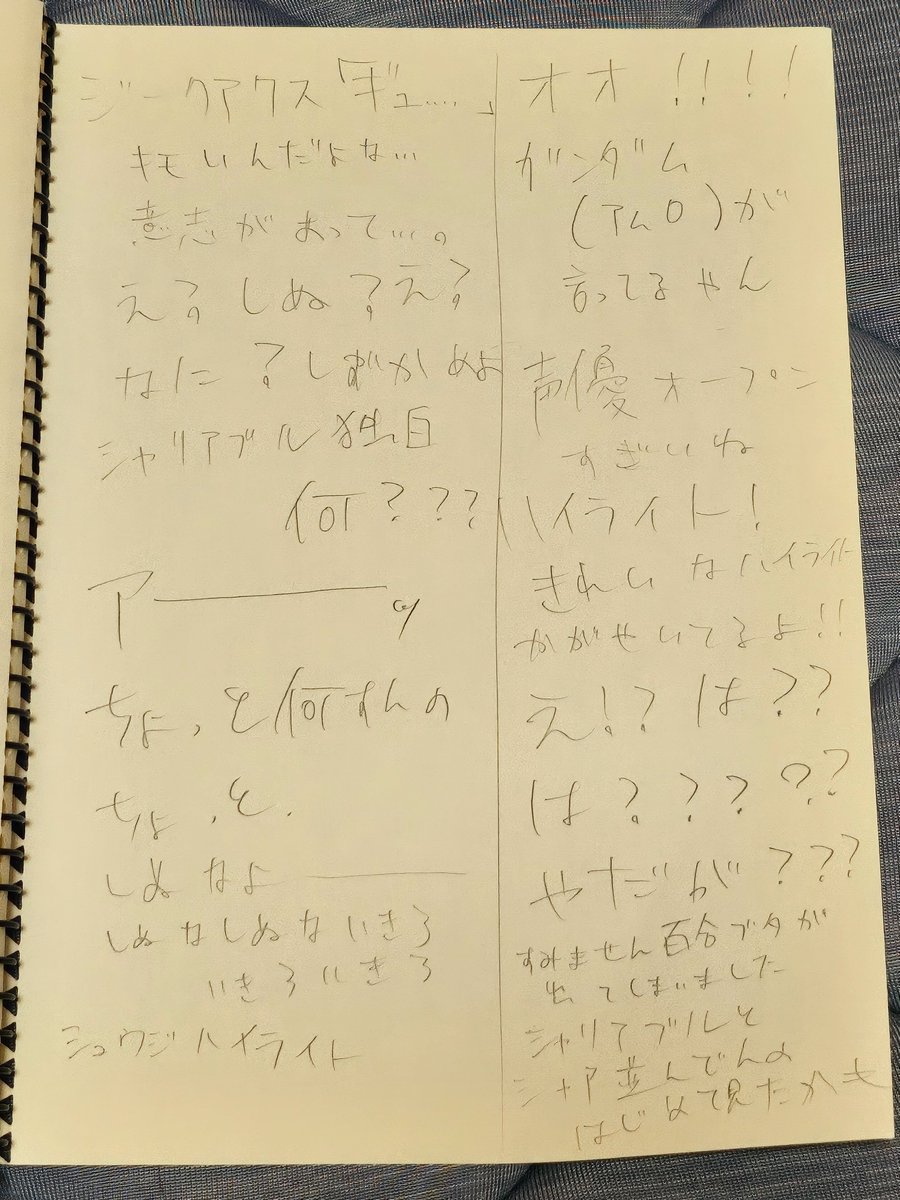 ジークアクス「ギュ……」
キモいんだよな…
意志があって…。
え？しぬ？え？
なに？しずかめよ
シャリアブル独白
何？？？
アーーーッ
ちょっと何すんの
ちょっと、
しぬなよーーー
しぬなしぬないきろ
いきろいきろ
シュウジハイライト
オオ！！！！
ガンダム
(アムロ)が
言ってるやん
声優オープン
すぎいね
ハイライト！
きれいなハイライト
かがせいてるよ！！
え！？は？？
は？？？？？
やだが？？？
すみません百合ブタが
出てしまいました
シャリアブルと
シャア並んでんの
はじめて見たかも